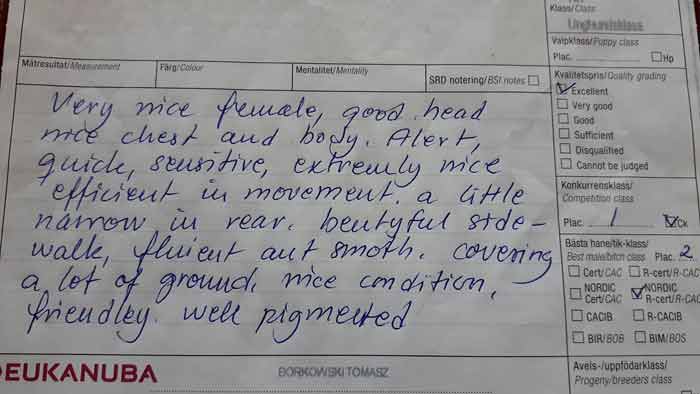 Klass/Class
Unghundsklass
Valpklass/Puppy class
Plac. Hp
Mätresultat/Measurement
Färg/Colour
Mentalitet/Mentality
SRD notering/BSI notes
Kvalitetspris/Quality grading
Excellent
Very good
Good
Sufficient
Disqualified
Cannot be judged
Konkurrensklass/
Competition class
Plac. 1 Ck
Bästa hane/tik-klass/
Best male/bitch class Plac. 2
Cert/CAC R-cert/R-CAC
NORDIC Cert/CAC NORDIC R-cert/R-CAC
CACIB R-CACIB
BIR/BOB BIM/BOS
Avels-/uppfödarklass/
Progeny/breeders class
Very nice female, good head
nice chest and body. Alert,
quick, sensitive, extremly nice
efficient in movement. a little
narrow in rear. beutyful side-
walk, fluient aut smoth. covering
a lot of ground, nice condition,
friendley. well pigmented
EUKANUBA
BORKOWSKI TOMASZ